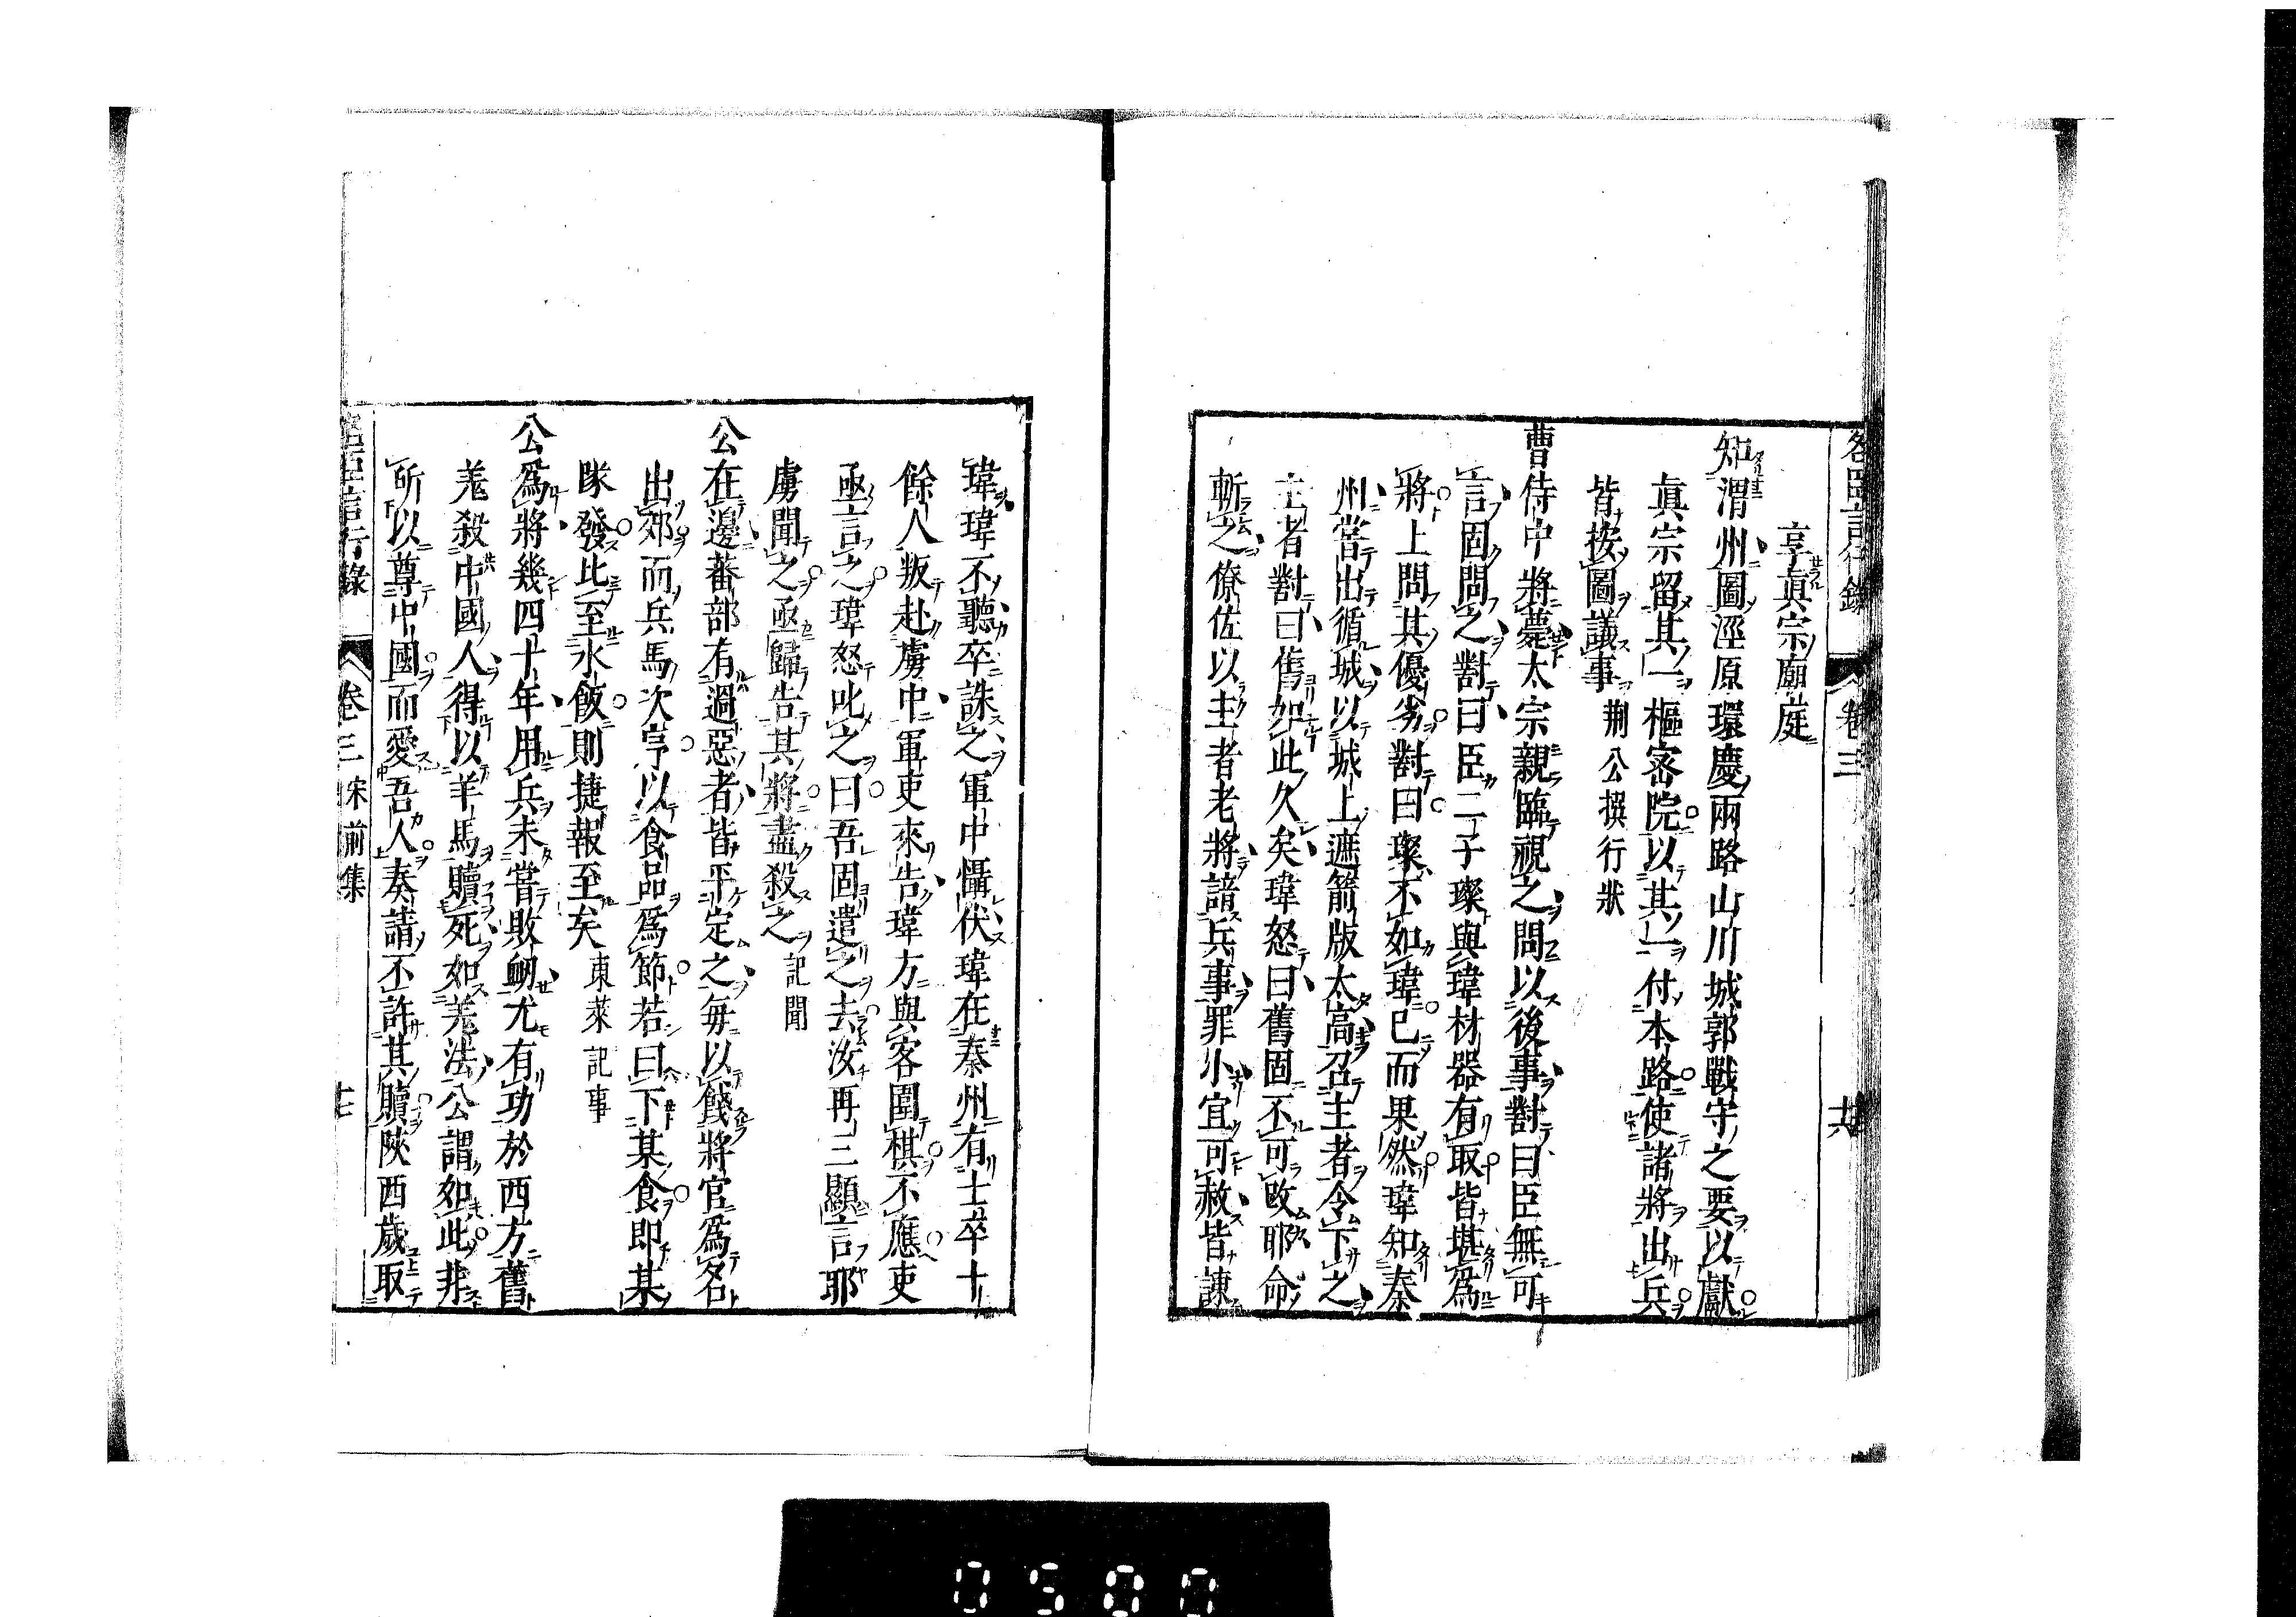 名臣言行錄 卷三
享眞宗廟庭
知渭州圖涇原環慶兩路山川城郭戰守之要以獻
眞宗留其一樞密院以其一付本路使諸將出兵
皆按圖議事 荆公撰行狀
曹侍中將薨太宗親臨視之問以後事對曰臣無可
言固問之對曰臣二子璨與瑋材器有取皆堪爲
將上問其優劣對曰璨不如瑋已而果然瑋知秦
州嘗出循城以城上遮箭版太高召主者令下之
主者對曰舊如此久矣瑋怒曰舊固不可改耶命
斬之僚佐以主者老將諳兵事罪小宜可赦皆諫
瑋瑋不聽卒誅之軍中懾伏瑋在秦州有士卒十
餘人叛赴虜中軍吏來告瑋方與客圍棋不應吏
亟言之瑋怒叱之曰吾固遣之去汝再三顯言耶
虜聞之亟歸告其將盡殺之 記聞
公在邊蕃部有過惡者皆平定之每以餞將官爲名
出郊而兵馬次享以食品爲節若曰下某食即某
隊發比至水飯則捷報至矣 東萊記事
公爲將幾四十年用兵未嘗敗衂尤有功於西方舊
羌殺中國人得以羊馬贖死如羌法公謂如此非
所以尊中國而愛吾人奏請不許其贖陝西歲取
名臣言行錄 卷三 宋前集
0500